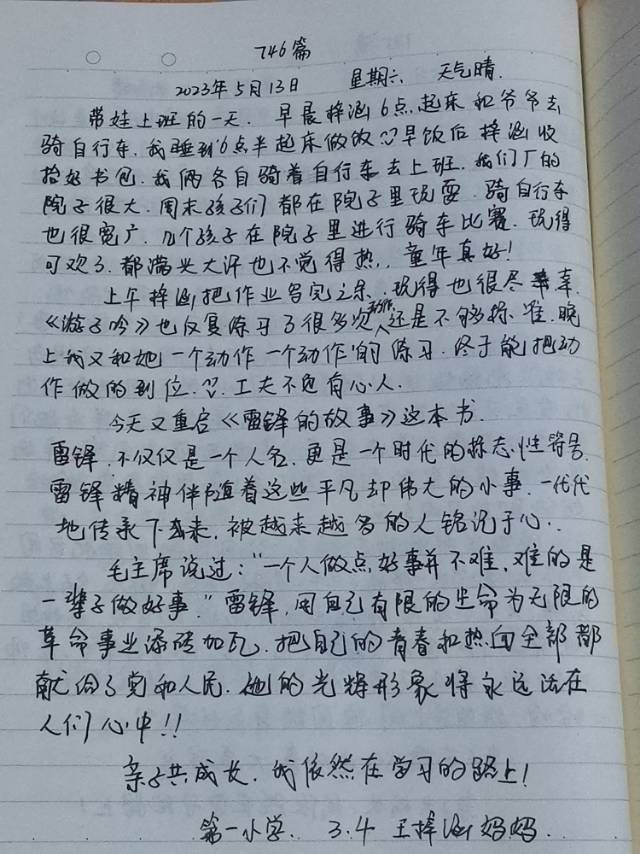 746篇
2023年5月13日 星期六 天气晴.
带娃上班的一天. 早晨梓涵6点起床和爷爷去
骑自行车. 我睡到6点半起床做饭♡♡早饭后 梓涵收
拾好书包. 我俩各自骑着自行车去上班. 我们厂的
院子很大. 周末孩子们 都在院子里玩耍. 骑自行车
也很宽广. 几个孩子在院子里进行骑车比赛. 玩得
可欢了. 都满头大汗也不觉得热,. 童年真好!
上午梓涵把作业写完之余. 玩得也很尽幸.
《游子吟》也反复练习了很多次, 动作还是不够标准. 晚
上我又和她一个动作一个动作的练习. 终于能把动
作做的到位. ♡♡. 工夫不负有心人.
今天又重启《雷锋的故事》这本书.
雷锋. 不仅仅是一个人名. 更是一个时代的标志性符号.
雷锋精神伴随着这些平凡却伟大的小事. 一代代
地传承下来, 被越来越多的人铭记于心..
毛主席说过:"一个人做点好事并不难, 难的是
一辈子做好事." 雷锋, 用自己有限的生命为无限的
革命事业添砖加瓦. 把自己的青春和热血全部都
献给了党和人民. 他的光辉形象将永远活在
人们心中!!
亲子共成长. 我依然在学习的路上!
第一小学. 3.4 王梓涵妈妈.